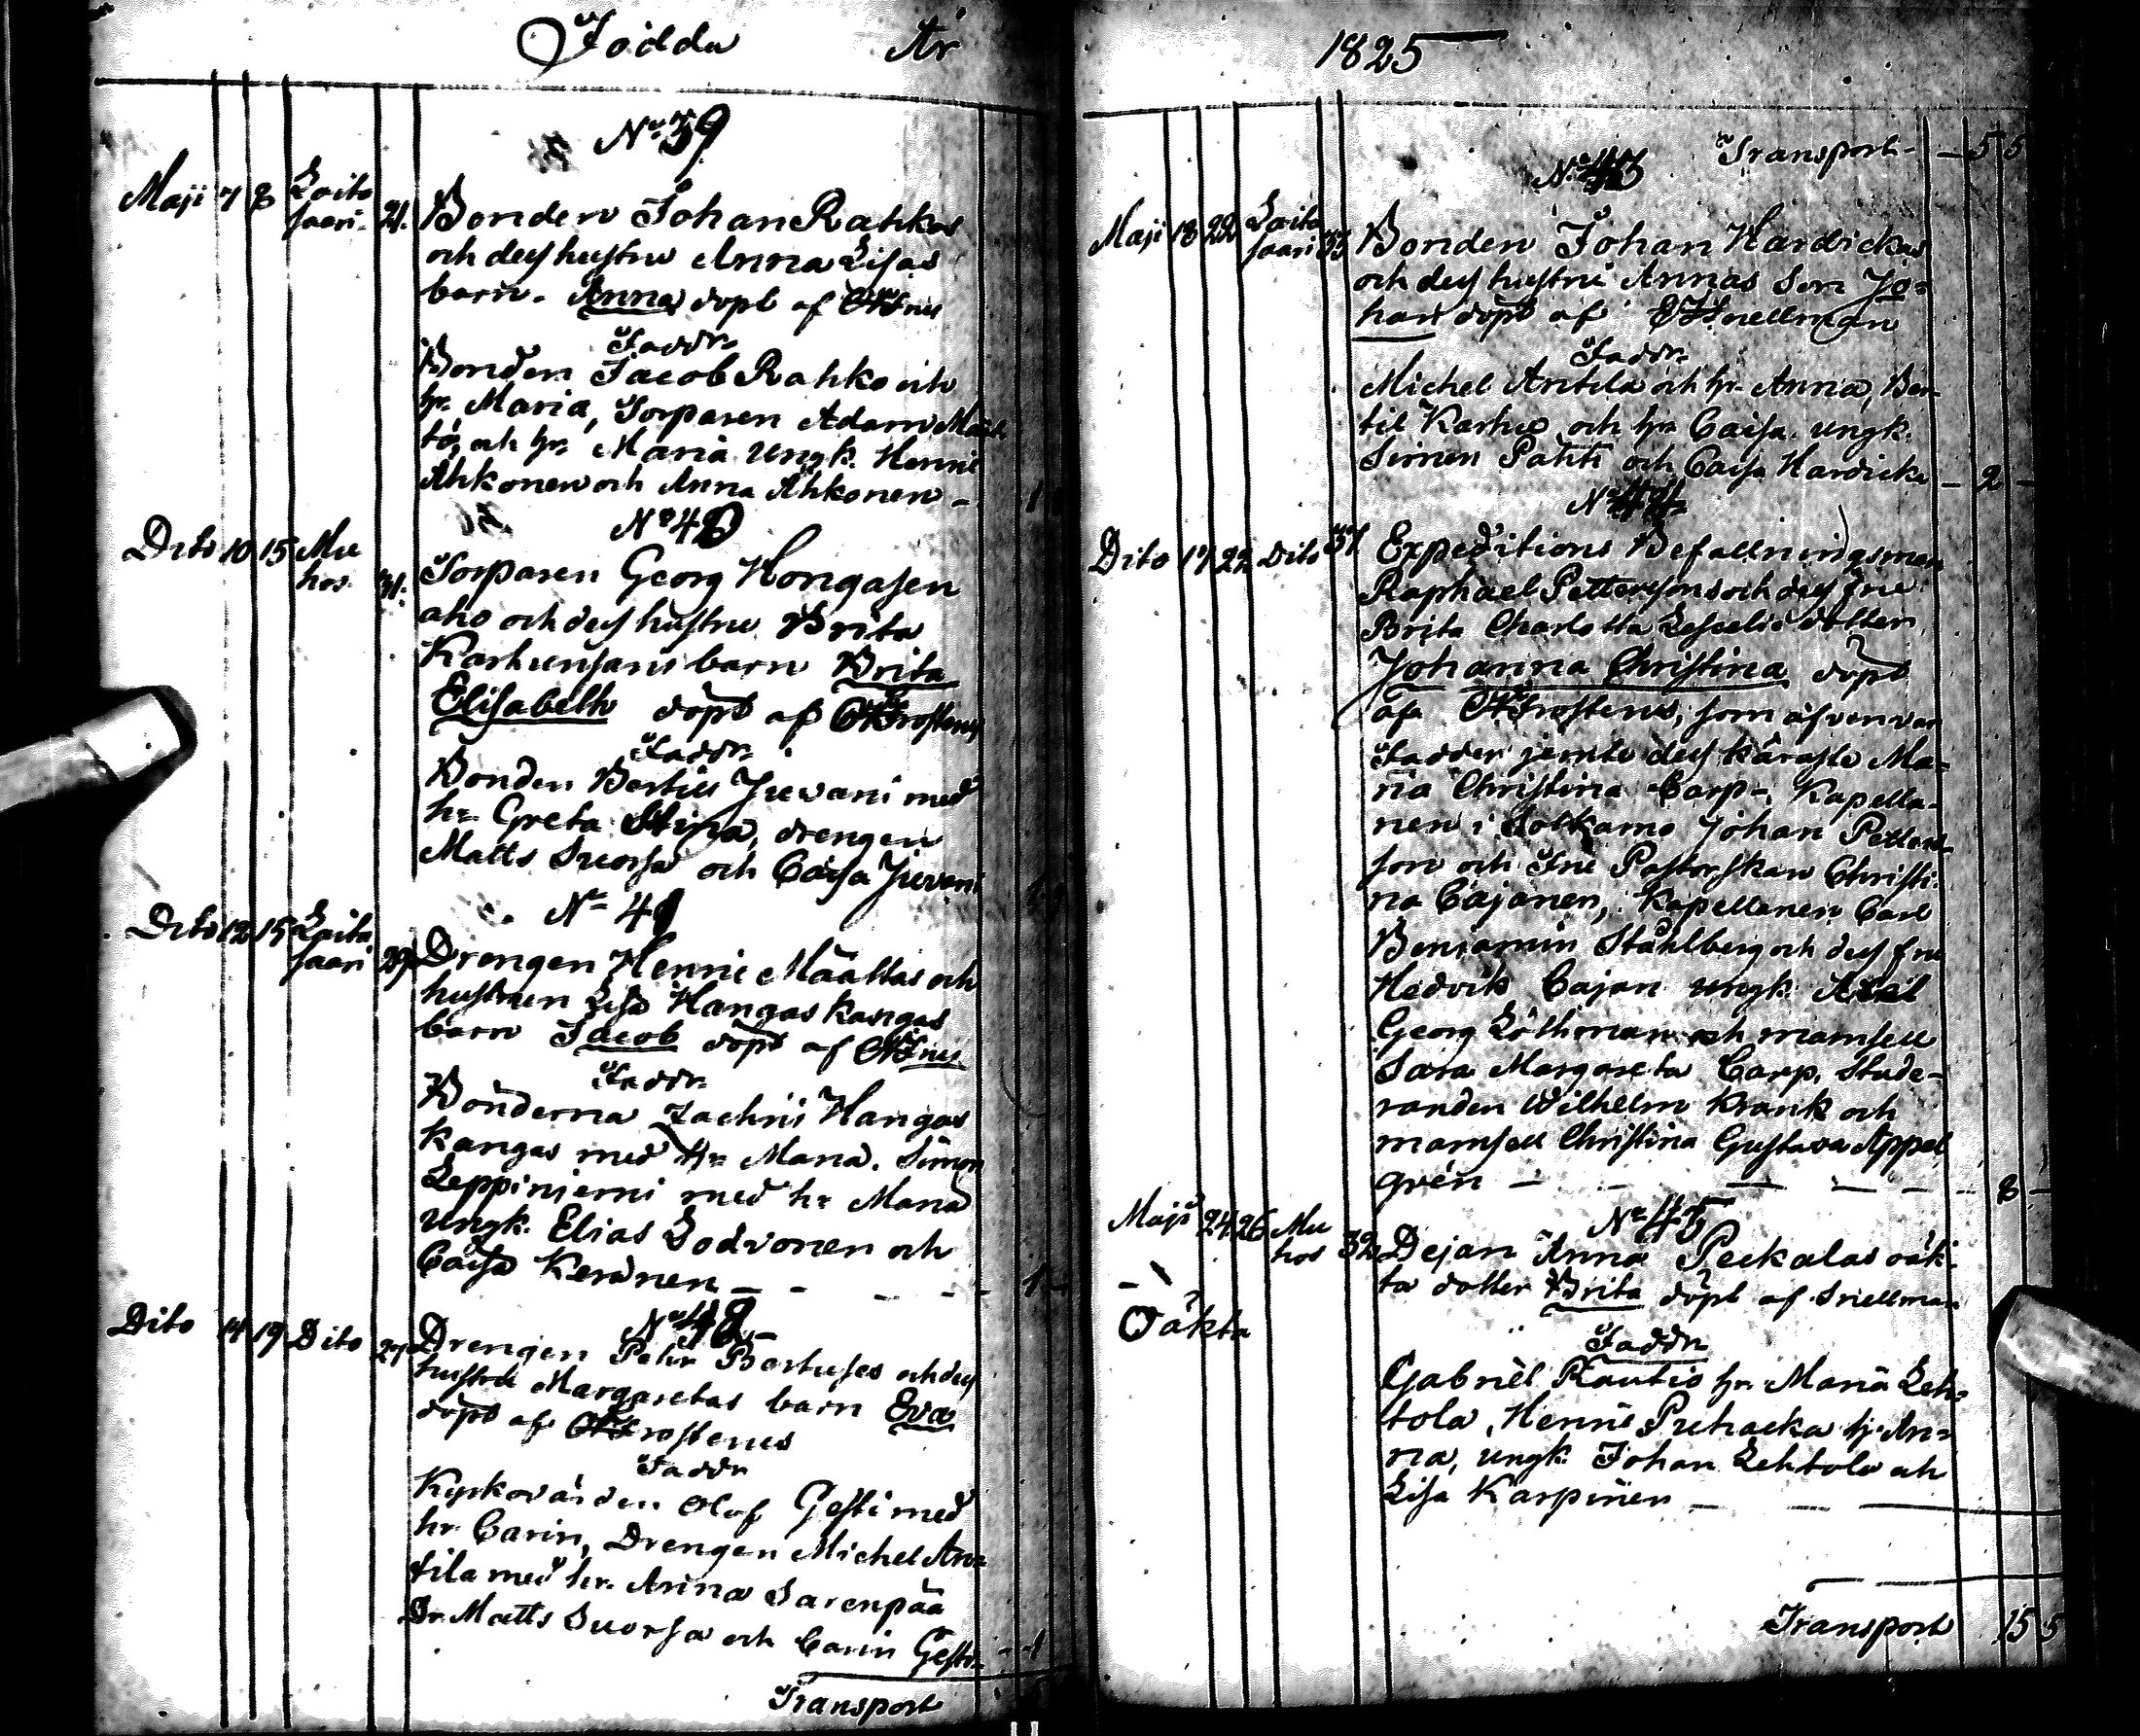 Födda År
No 39
Maji 7 8 Loito
saari. 21. Bonden Johan Rahkos
och dess hustru Anna Lisas
barn. Anna döpt af
Faddr
Bonden Jacob Rahko och
hr. Maria, Torparen Adam Määt
tö, och hr. Maria Ungk. Henric
Ahkonen och Anna Ahkonen - 1
No 40
Dito 10 15 Mu
hos. Torparen Georg Hongasen
aho och dess hustru Brita
Karhunsans barn Brita
Elisabeth döpt af Frostenus
Faddr
Bonden Bertil Juvani med
hr Greta Stina, drengen
Matts Suorsa och Caisa Juvani
No 41
Dito 12 15 Loito
saari 29 Drengen Henric Määttas och
hustrun Lisa Hangaskangas
barn Jacob döpt af
Faddr
Bönderna Zachris Hangas
kangas med hr Maria. Simon
Leppiniemi med hr Maria
Ungk. Elias Lodvonen och
Caisa Keränen - 1
No 42
Dito 14 19 Dito 27 Drengen Pehr Bertuses och dess
hustru Margaretas barn Eva
döpt af Frostenus
Faddr
Kyrkovärden Olof Gesti med
hr. Carin, Drengen Michel An=
tila med hr. Anna Sarenpää
Dr. Matts Suorsa och Carin Gesti - 1
Transport
1825
Transport - 5 5
No 43
Maji 18 22 Loito
saari 33 Bonden Johan Hardickas
och dess hustru Annas Son Jo=
han döpt af Snellman
Faddr
Michel Antila och hr. Anna, Ber
til Karhu och hr Caisa, ungk.
Simon Pahti och Caisa Hardicka - 2 -
No 44
Dito 17 22 Dito 37 Expeditions Befallningsman
Raphael Pettersons och dess Fru
Brita Charlotta dotter
Johanna Christina döpt
af Frostenus, som äfven var
Fadder jemte dess käraste Ma=
ria Christina Carp -, Kapella-
nen i Sotkamo Johan Petter
son och Fru Pastorskan Christi=
na Cajanen, Kapellanen Carl
Benjamin Ståhlberg och dess fru
Hedvik Cajan ungk. Axel
Georg Löthman och mamsell
Sara Margareta Carp, Stude-
randen Wilhelm Krank och
mamsell Christina Gustava Appel
grén - 8 -
No 45
Maji 24 26 Mu
hos 32 Dejan Anna Peckalas oäk=
ta dotter Brita döpt af Snellman
Oäkta
Faddr
Gabriel Rautio hr. Maria Leh=
tola, Henric Puhacka hr An=
na, ungk. Johan Lehtola och
Lisa Karpinen -
Transport 15 5